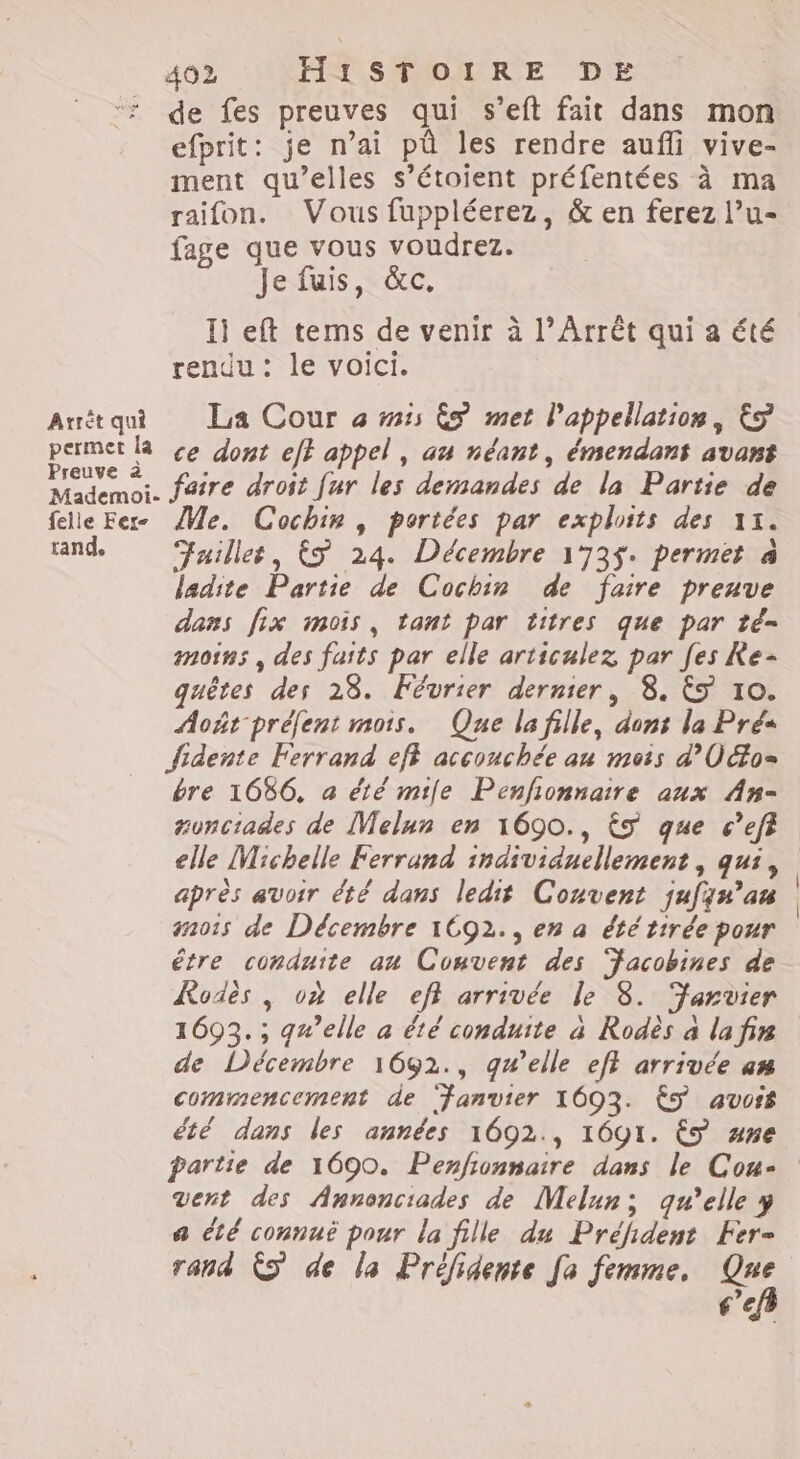 402 HISTOIRE DE
de ſes preuves qui s'eſt fait dans mon
eſprit: je n'ai pû les rendre auſſi vive-
ment qu'elles s'étoient préſentées à ma
raiſon. Vous ſuppléerez, & en ferez l'u-
ſage que vous voudrez.
Je ſuis, &c.
Il eſt tems de venir à l'Arrêt qui a été
rendu: le voici.
Arrêt qui
permet la
Preuve à
Mademoi-
ſelle Fer-
rand.
La Cour a mis & met l'appellation, &
ce dont eſt appel, au néant, émendant avant
faire droit ſur les demandes de la Partie de
Me. Cochin, portées par exploits des 11.
Juillet, & 24. Décembre 1735. permet à
ladite Partie de Cochin de faire preuve
dans ſix mois, tant par titres que par té-
moins, des faits par elle articulez par ſes Re-
quêtes des 28. Février dernier, 8. & 10.
Août préſent mois. Que la fille, dont la Pré-
ſidente Ferrand eſt accouchée au mois d'Octo-
bre 1686, a été miſe Penſionnaire aux An-
nonciades de Melun en 1690., & que c'eſt
elle Michelle Ferrand individuellement, qui,
après avoir été dans ledit Couvent juſqu'au
mois de Décembre 1692., en a été tirée pour
être conduite au Couvent des Jacobines de
Rodès, où elle eſt arrivée le 8. Janvier
1693.; qu'elle a été conduite à Rodès à la fin
de Décembre 1692., qu'elle eſt arrivée au
commencement de Janvier 1693. & avoit
été dans les années 1692., 1691. & une
partie de 1690. Penſionnaire dans le Cou-
vent des Annonciades de Melun; qu'elle y
a été connuë pour la fille du Préſident Fer-
rand & de la Préſidente ſa femme. Que
s'eſt